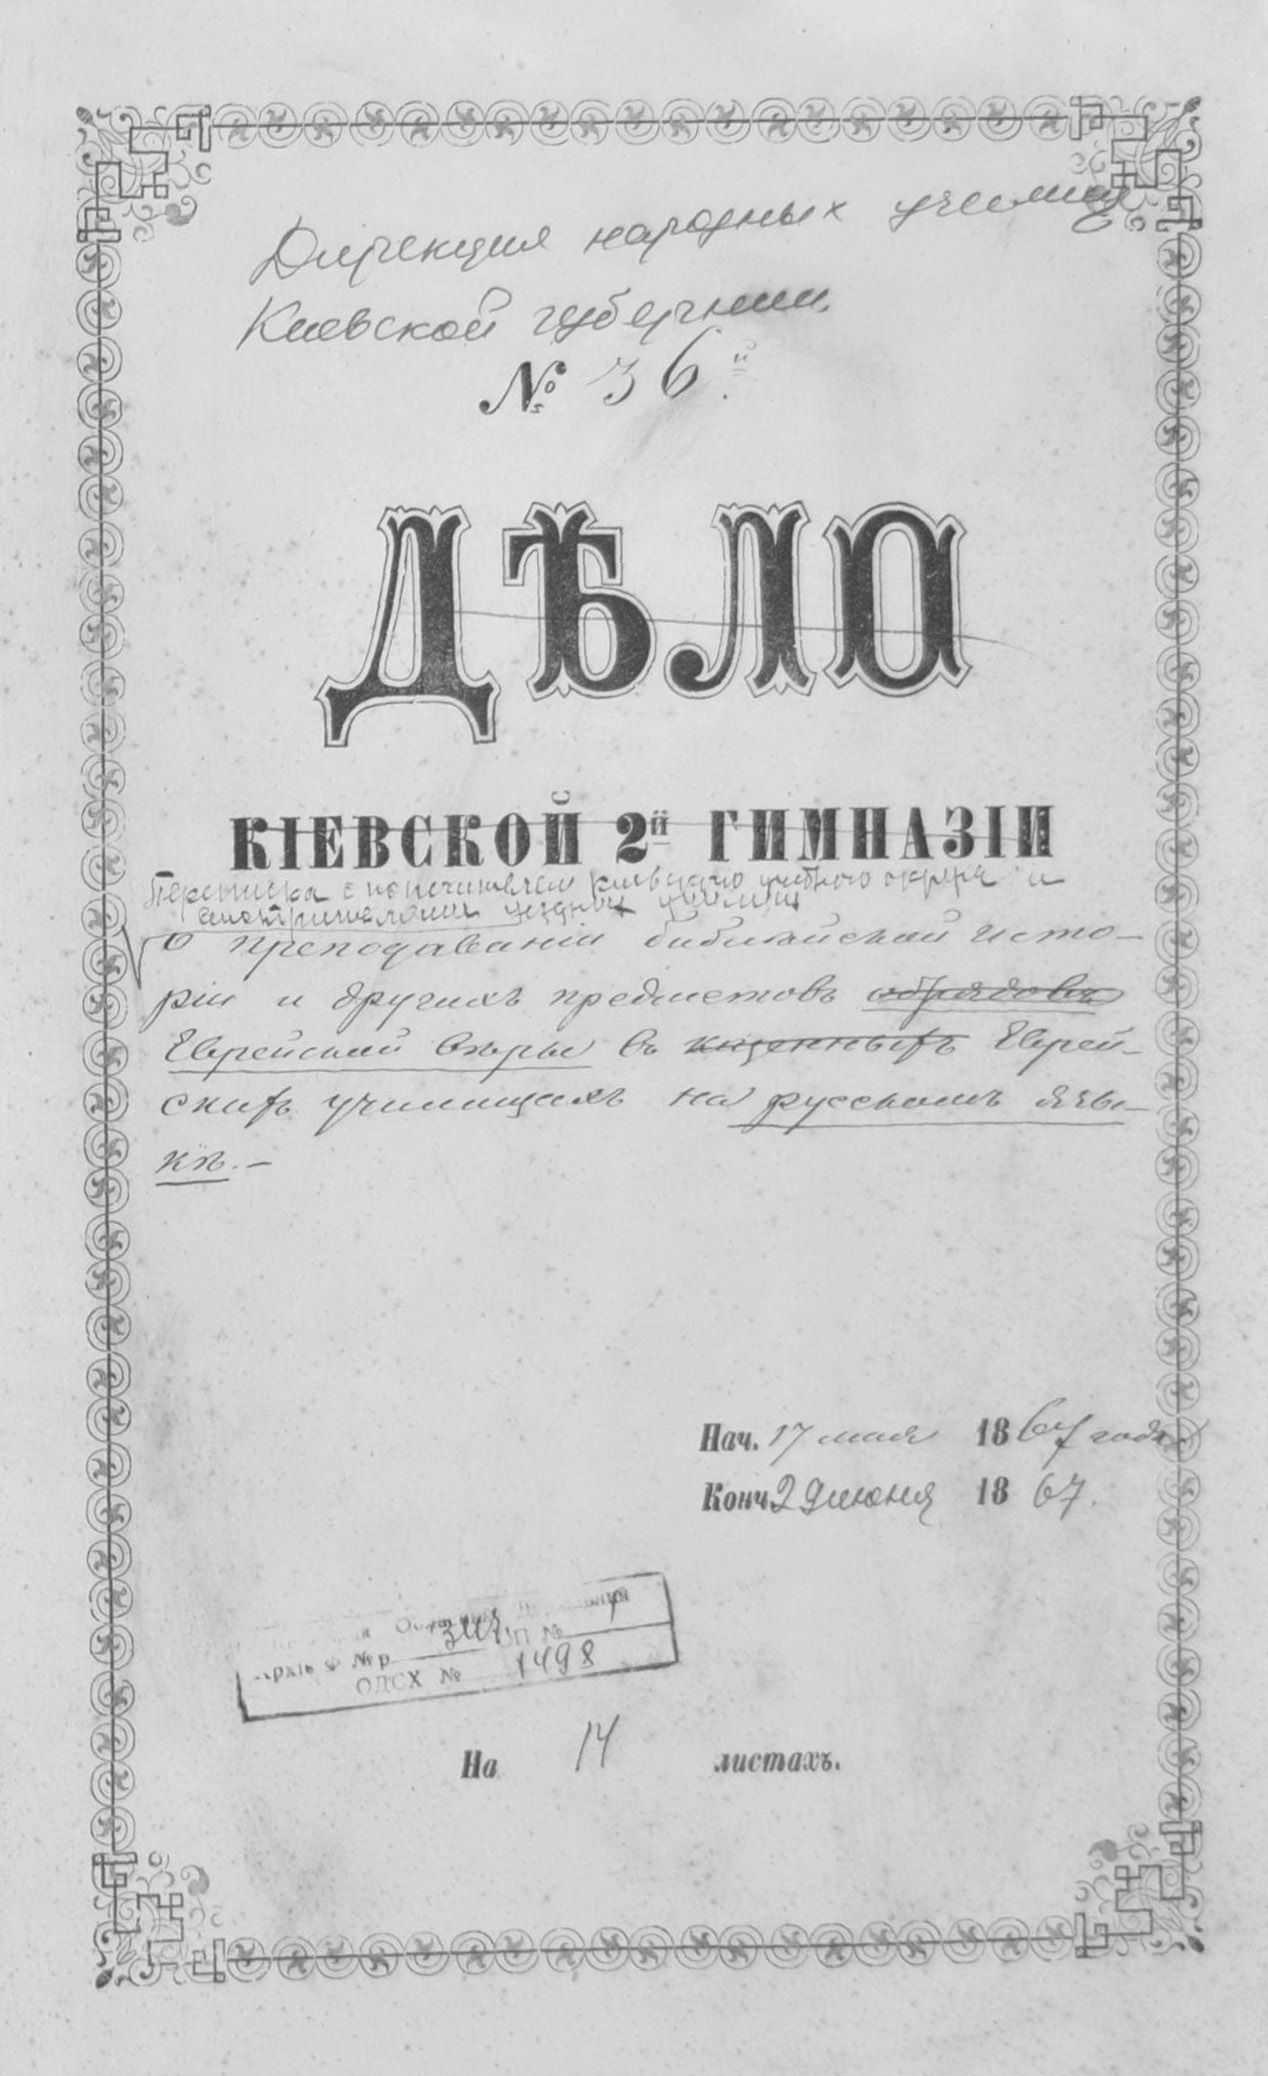 Дирекция народных училищ
Киевской губернии.
№ 36.й
ДѢЛО
КІЕВСКОЙ 2й ГИМНАЗІИ
Переписка с попечителем киевского учебного округа и
смотрителями уездных училищ
о преподаваніи библейской исто-
ріи и другихъ предметовъ обрядовъ
Еврейской вѣры въ казенныхъ Еврей-
скихъ училищахъ на русскомъ язы-
кѣ.-
Нач. 17 мая 1867 года
Конч. 29 июня 1867.
Архів Ф № р ОП № 1
ОДСХ № 1498
На 14 листахъ.